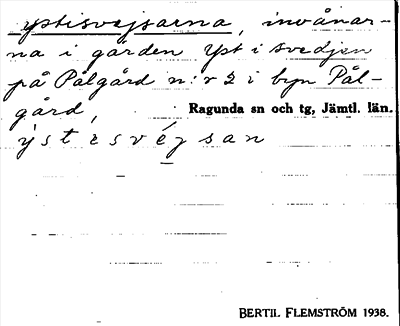 ystisvejsarna, invånar-
na i gården Yst i svedjen
på Pålgård n:r 2 i byn Pål-
gård, Ragunda sn och tg, Jämtl. län.
ýstɩsvéjsan
BERTIL FLEMSTRÖM 1938.